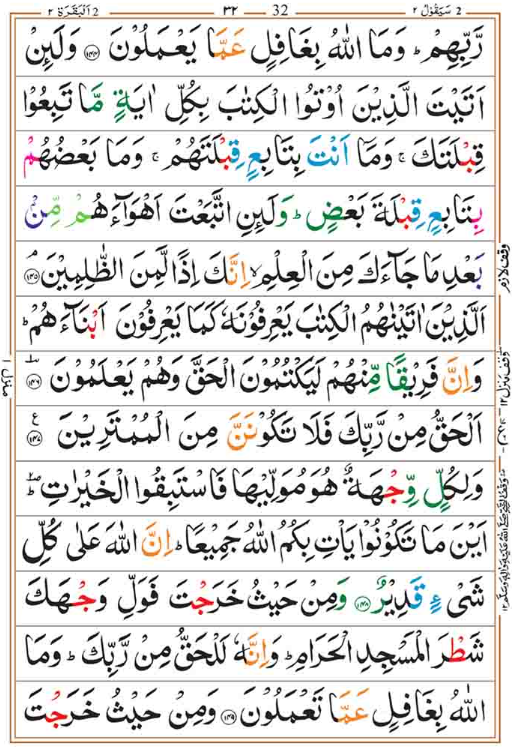 ٢ اَلۡبَقَرَة 2 ٣٢ 32 ٢ سَيَقُوۡلُ 2
رَّبِّهِمۡ‌ؕ وَمَا اللّٰهُ بِغَافِلٍ عَمَّا يَعۡمَلُوۡنَ ﴿۱۴۴﴾ وَلَٮِٕنۡ
اَتَيۡتَ الَّذِيۡنَ اُوۡتُوا الۡكِتٰبَ بِكُلِّ اٰيَةٍ مَّا تَبِعُوۡا
قِبۡلَتَكَ‌ۚ وَمَآ اَنۡتَ بِتَابِعٍ قِبۡلَتَهُمۡ‌ۚ وَمَا بَعۡضُهُمۡ
بِتَابِعٍ قِبۡلَةَ بَعۡضٍؕ وَلَٮِٕنِ اتَّبَعۡتَ اَهۡوَآءَهُمۡ مِّنۡۢ
بَعۡدِ مَا جَآءَكَ مِنَ الۡعِلۡمِ‌ۙ اِنَّكَ اِذًا لَّمِنَ الظّٰلِمِيۡنَ‌ۘ ﴿۱۴۵﴾
اَلَّذِيۡنَ اٰتَيۡنٰهُمُ الۡكِتٰبَ يَعۡرِفُوۡنَهٗ كَمَا يَعۡرِفُوۡنَ اَبۡنَآءَهُمۡؕ
وَاِنَّ فَرِيۡقًا مِّنۡهُمۡ لَيَكۡتُمُوۡنَ الۡحَقَّ وَهُمۡ يَعۡلَمُوۡنَؔ ﴿۱۴۶﴾
اَلۡحَقُّ مِنۡ رَّبِّكَ فَلَا تَكُوۡنَنَّ مِنَ الۡمُمۡتَرِيۡنَ ﴿۱۴۷﴾ ع
وَلِكُلٍّ وِّجۡهَةٌ هُوَ مُوَلِّيۡهَا فَاسۡتَبِقُوا الۡخَيۡرٰتِؕؔ
اَيۡنَ مَا تَكُوۡنُوۡا يَاۡتِ بِكُمُ اللّٰهُ جَمِيۡعًاؕ اِنَّ اللّٰهَ عَلٰى كُلِّ
شَىۡءٍ قَدِيۡرٌ ﴿۱۴۸﴾ وَمِنۡ حَيۡثُ خَرَجۡتَ فَوَلِّ وَجۡهَكَ
شَطۡرَ الۡمَسۡجِدِ الۡحَـرَامِؕ وَاِنَّهٗ لَـلۡحَقُّ مِنۡ رَّبِّكَؕ وَمَا
اللّٰهُ بِغَافِلٍ عَمَّا تَعۡمَلُوۡنَ ﴿۱۴۹﴾ وَمِنۡ حَيۡثُ خَرَجۡتَ
وقف لازم
منزل ١